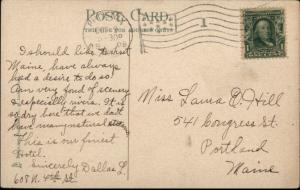 POST CARD
1
I should like to visit
Maine, have always
had a desire to do so!
Am very fond of scenery
& especially rivers. It is
so dry here that we don't
have many natural
This is our finest
Hotel.
Sincerely Dallas L.
608 N. 4th St
Miss Laura E. Hill
541 Congress St.
Portland
Maine